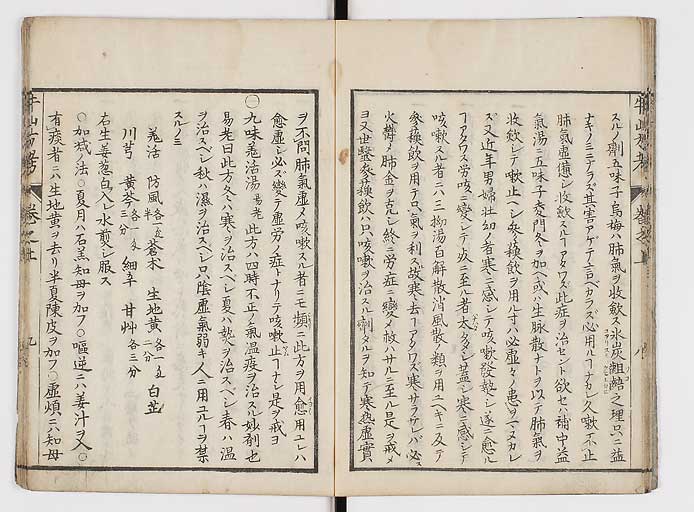 スルノ剤五味子烏梅ハ肺氣ヲ收歛ス氷炭齟齬之理只ニ益
ナキノミニアラズ其害アゲテ言ベカラズ必用ルヿナカレ久嗽不止
肺氣虚憊シ收歛スルヿアタワズ此症ヲ治セント欲セハ補中益
氣湯ニ五味子麥門冬ヲ加ヘ或ハ生脉散ナトヲ以テ肺氣ヲ
收歛シテ嗽止ヘシ參蘓飲ヲ用ル寸ハ必虚々ノ患ヲマヌカレ
ズ又近年男婦壮幼ノ者寒ニ感シテ咳嗽發熱シ遂ニ愈ル
ヿアタワス労咳ニ變シテ死ニ至ル者太タ多シ蓋シ寒ニ感シテ
咳嗽スル者ニハ三拗湯百解散消風收ノ類ヲ用ユヘキニ反テ
參蘓飲ヲ用テ只氣ヲ利ス故寒去ヿアタワズ寒サラザレバ必
火欝メ肺金ヲ克シ終ニ労症ニ變メ救ハサルニ至ル是ヲ戒メ
ヨ又世醫參蘓飲ハ只咳嗽ヲ治スル剤タルヲ知テ寒熱虚實
ヲ不問肺氣虚メ咳嗽スル者ニモ頻ニ此方ヲ用愈用ユレハ
愈虚シ必ズ變テ虚労ノ症トナリテ咳嗽止ヿナシ是ヲ戒ヨ
九味羗活湯 易老 此方ハ四時不正ノ氣温疫ヲ治ス妙剤也
易老曰此方冬ハ寒ヲ治スベシ夏ハ熱ヲ治スベシ春ハ温
ヲ治スベシ秋ハ濕ヲ治スベシ只陰虚氣弱キ人ニ用ユルヿヲ禁
スルノミ
羗活 防風 各一匁五分 蒼朮 生地黄 各一匁二分 白芷
川芎 黄芩 各一匁三分 細辛 甘艸 各三分
右生姜葱白入レ水煎シ服ス
○加减ノ法○夏月ハ石羔知母ヲ加フ○嘔逆ニハ姜汁ヲ入○
有痰者ニハ生地黄ヲ去リ半夏陳皮ヲ加フ○虚煩ニハ知母